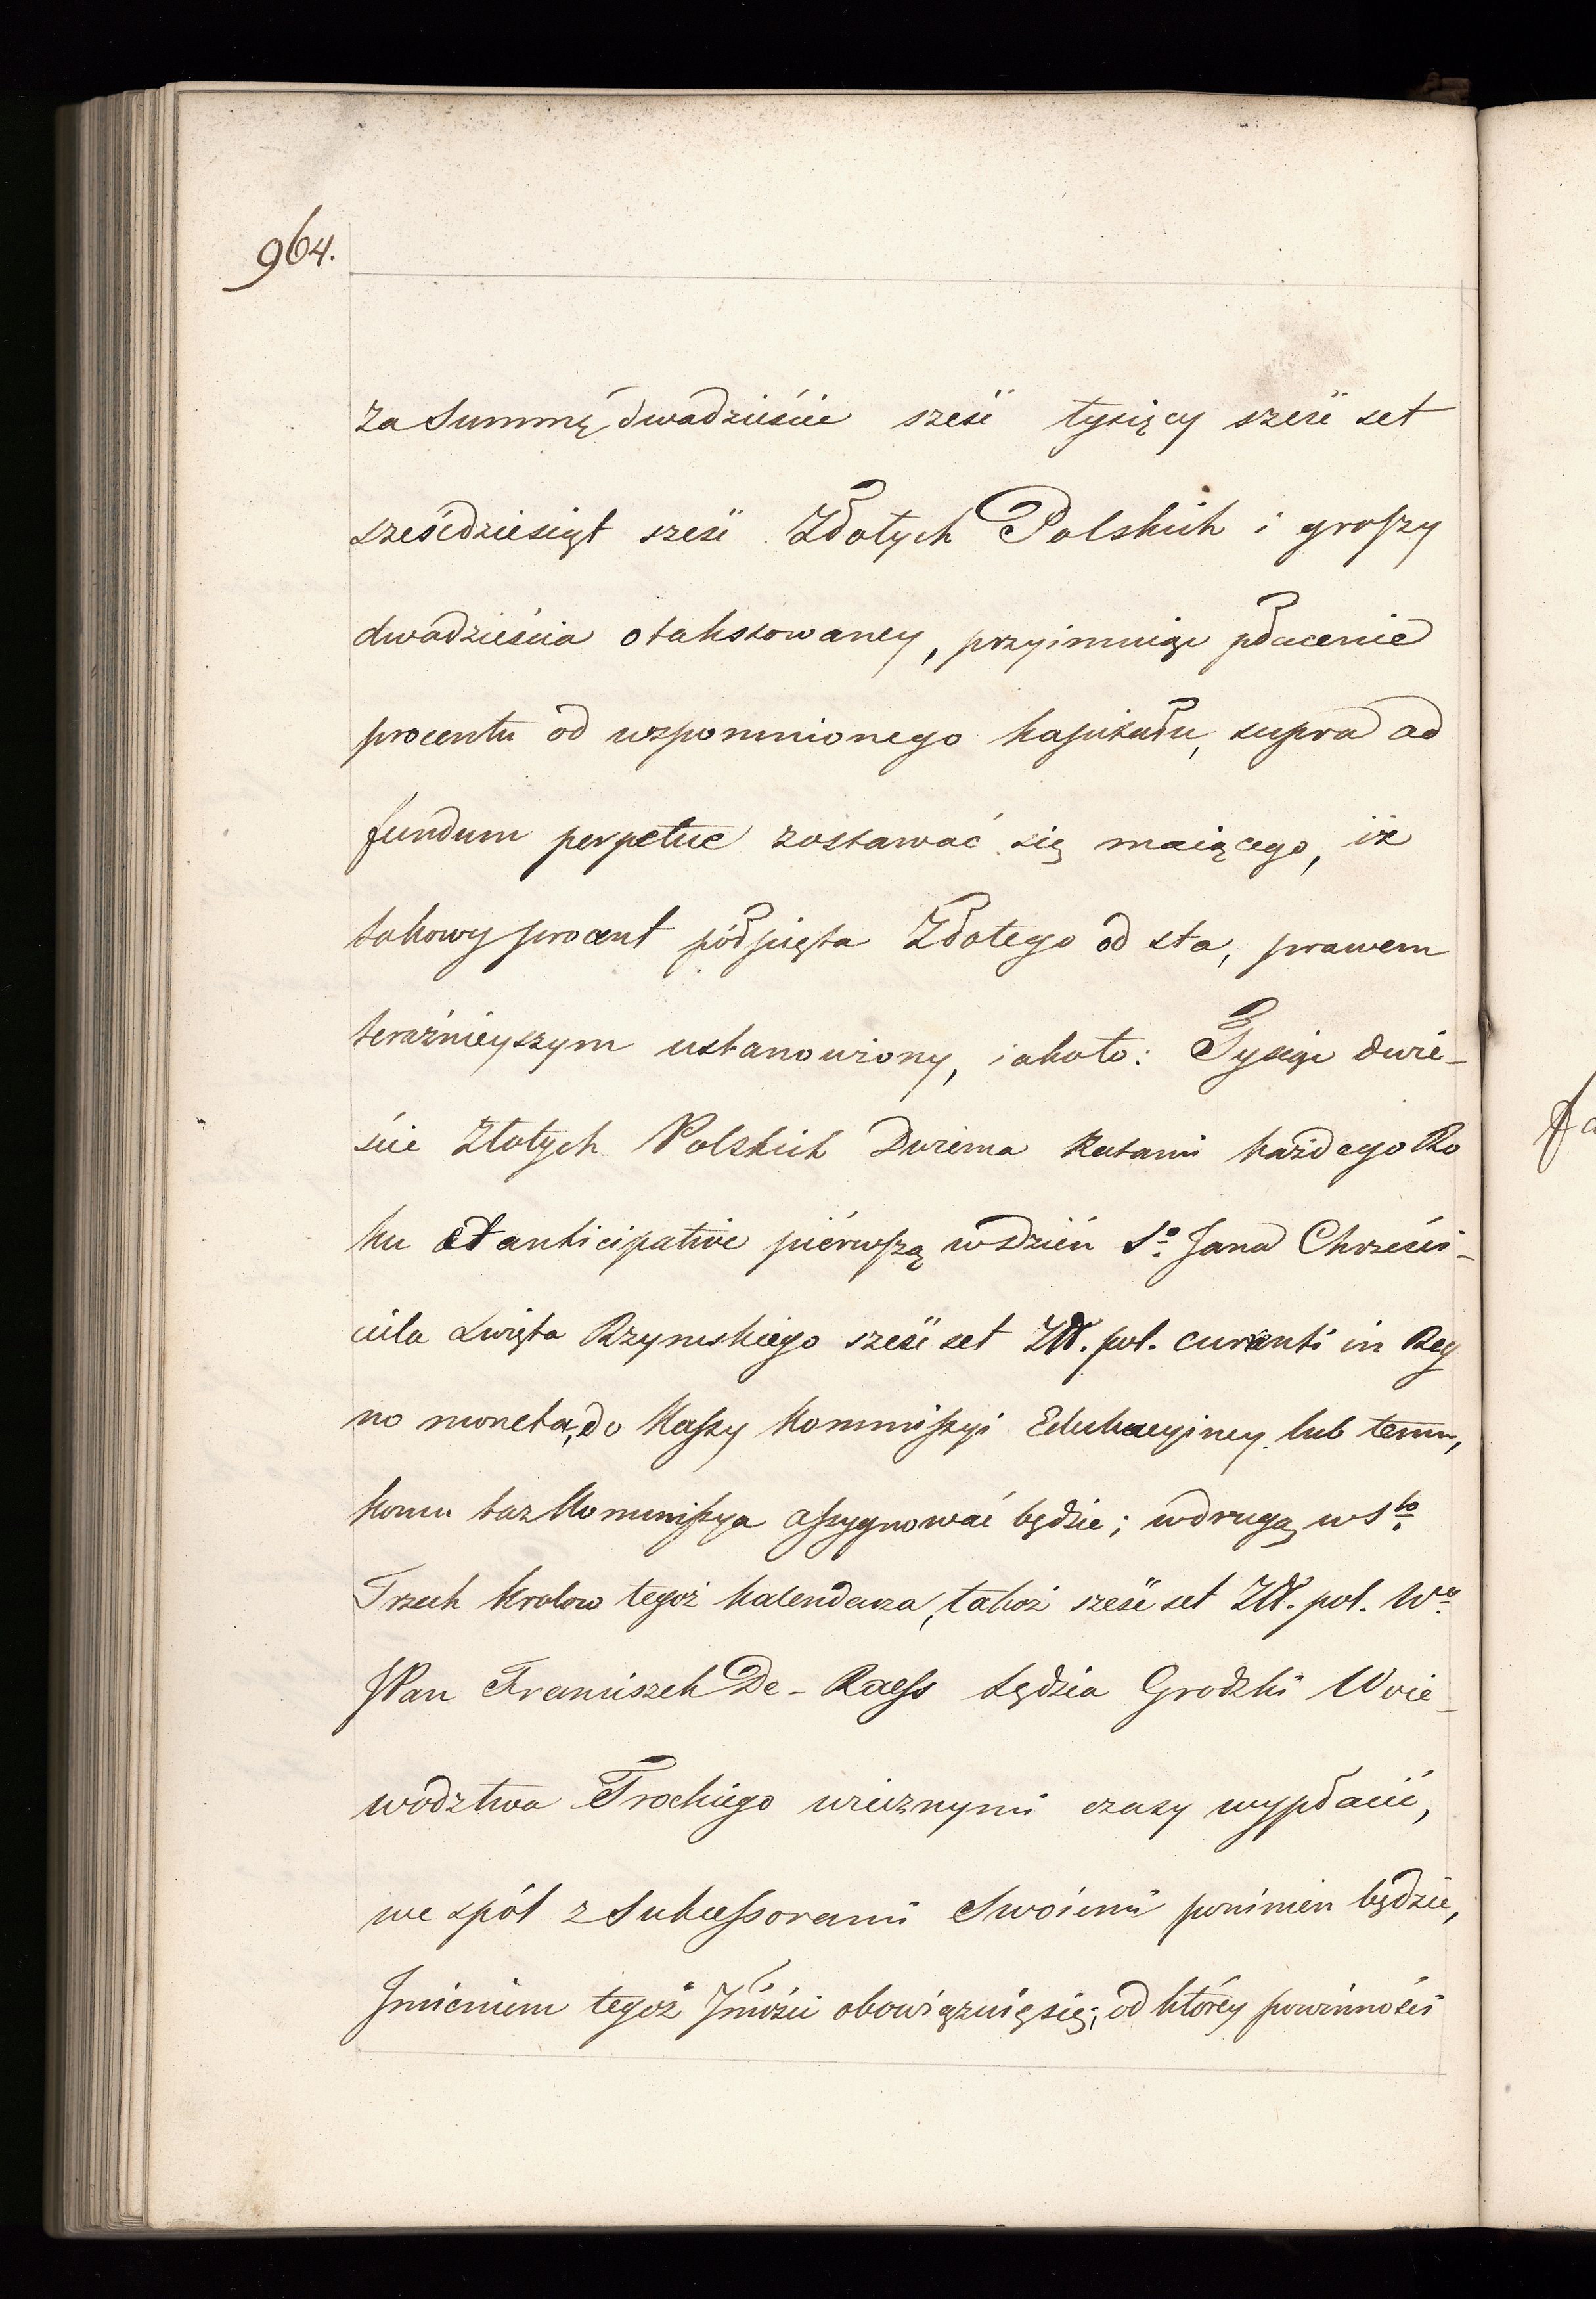 964.
za Summę dwadzieście sześć tysięcy sześć set
sześćdziesiąt sześć Złotych Polskich i groszy
dwadzieścia otaksowaney, przyimuiąc płacenie
procentu od wspomnionego kapitału, supra ad
fundum perpetue zostawać się maiącego, iż
takowy procent półpięta Złotego od sta, prawem
teraźnieyszym ustanowiony, iakoto: Tysiąc dwie-
ście Złotych Polskich Dwiema Ratami każdego Ro
ku et anticipative piérwszą w dzień So. Jana Chrześci-
ciela Święta Rzymskiego sześć set Złł. pol. curenti in Reg
no moneta, do Kassy Kommissyi Edukacyiney lub temu,
komu taz Kommissya assygnować będzie; w drugą w Sto.
Trzech Krolow tegoż kalendarza, takoż sześć set Złł. pol. Wy.
JPan Franciszek De-Raess Sędzia Grodzki Woie-
wodztwa Trockiego wiecznymi czasy wypłacić,
we spół z Sukcessorami Swoiemi powinien będzie,
Jmieniem tegoż Jmości obowiązuię się; od którey powinności